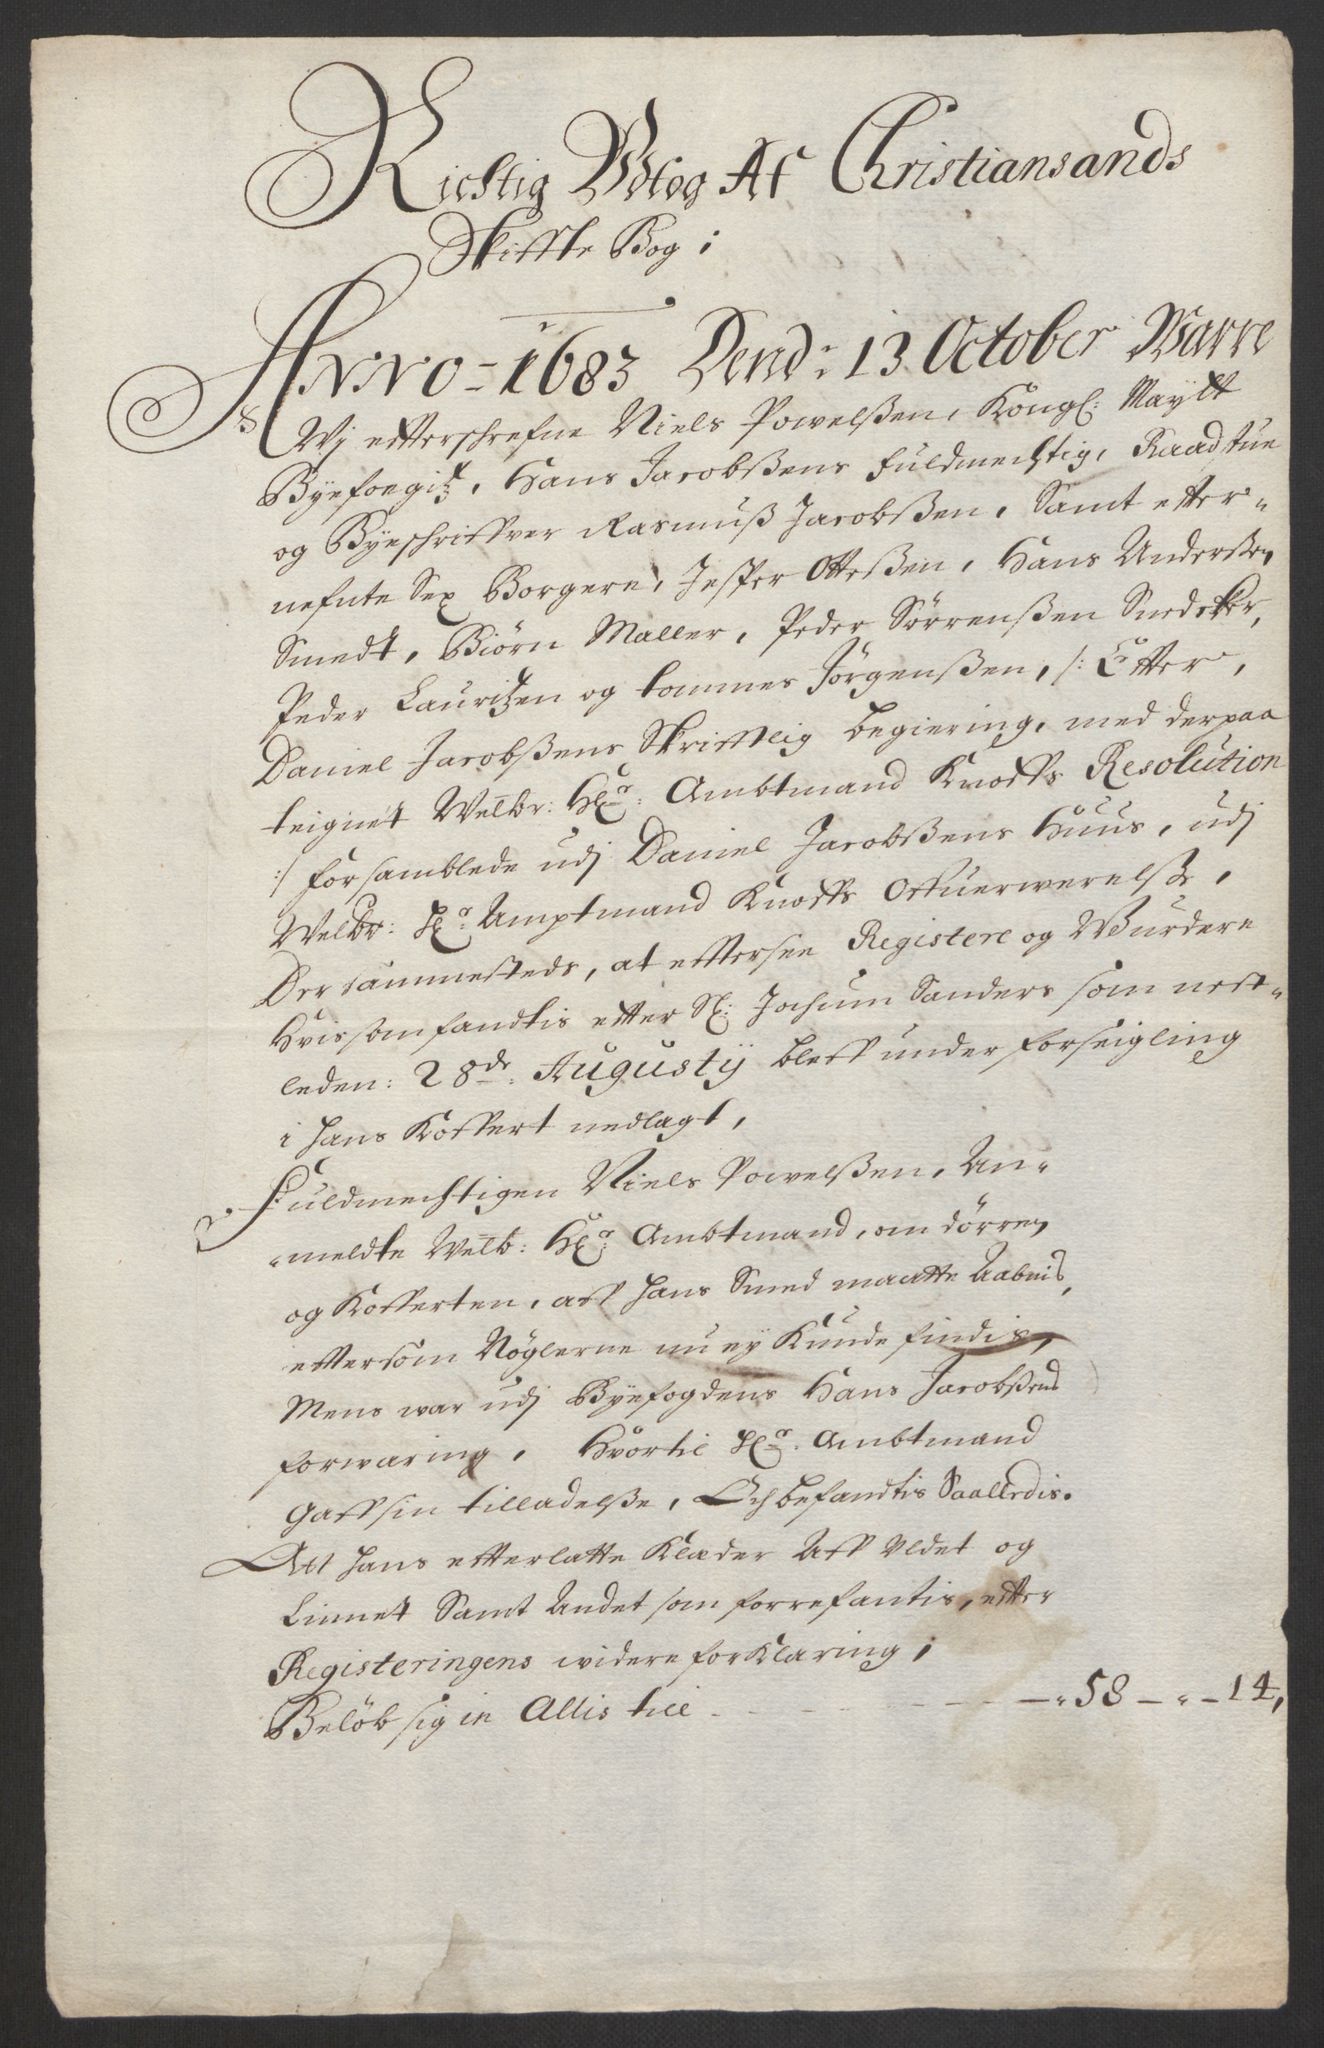 Richtig Wdtog Af Christiansands
Skiffte Bog i
Anno = 1683 Dend: 13 October Warre
Wj effterschrefne Niels Powelßen, Kongl: Maÿtt
Byefoegitz, Hans Jacobßens fuldmechtig, Raadstue
og Byeschriffver Rasmuß Jacobßen, Samt effter-
nefnte Sex Borgere, Jesper Otteßen, Hans Anderßen
Smedt, Biørn Maller, Peder Sørrenßen Snedcker,
Peder Lauritzen og tommes Jørgenßen, /: Effter,
Daniel Jacobßens Skrifftlig begiering, med derpaa
teignet Welbr: Hr: Ambtmand Knoffs Resolution
:/ forsamblede udj Daniel Jacobßens Huus, udj
Welbr: Hr: Amptmand Knoffs Offuerwerelße,
Der sammesteds, at effterse Registere og Wurdere
Hvis som fandtis effter Sl: Jochum Sanders som nest-
leden: 28de: Augustÿ bleff under forseigling
i hans Koffert nedlagt,
Fuldmechtigen Niels Powelßen, An-
meldte Welb: Hr: Ambtmand, om dørren
og Kofferten, aff hans Smed maatte Aabnis,
effter som Nøglerne nu ey Kunde findis,
Mens war udj Byefogdens Hans Jacobßens
forwaring, Hvortil Hr: Ambtmand
Gaff sin tilladelße, Och befandtis Saalledis.
Att hans effterlatte Klader Aff Uldet og
Linnet Samt Andet som forrefantis, effter
Registeringens widere forKlaring,
Beløb sig in Allis till - - - - 58 - - 14,